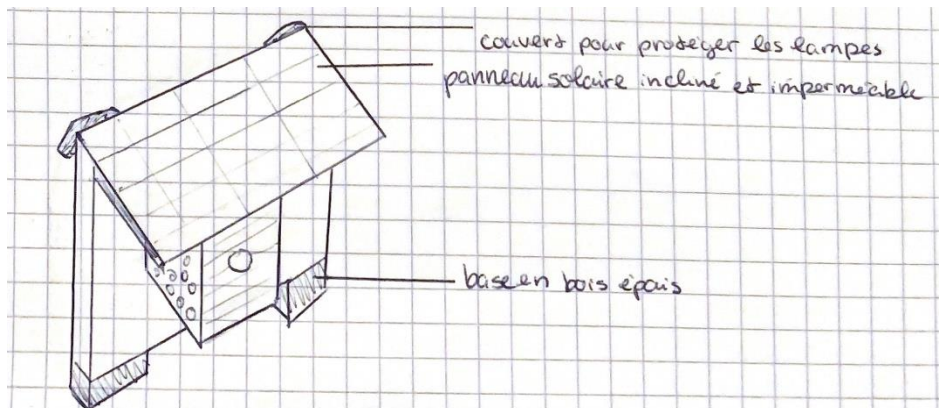 couvert pour protéger les lampes
panneau solaire incliné et imperméable
base en bois épais